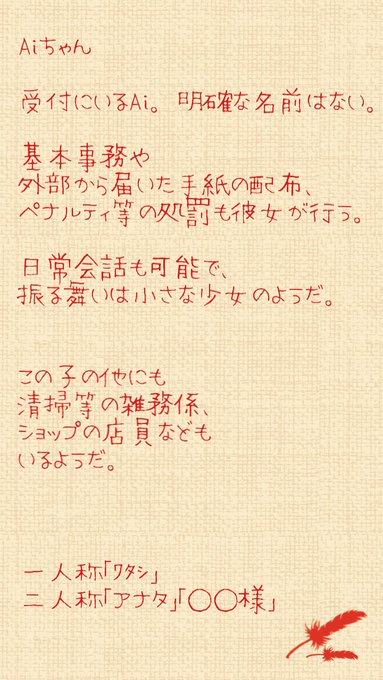 Aiちゃん
受付にいるAi。明確な名前はない。
基本事務や
外部から届いた手紙の配布、
ペナルティ等の処罰も彼女が行う。
日常会話も可能で、
振る舞いは小さな少女のようだ。
この子の他にも
清掃等の雑務係、
ショップの店員なども
いるようだ。
一人称「ワタシ」
二人称「アナタ」「〇〇様」